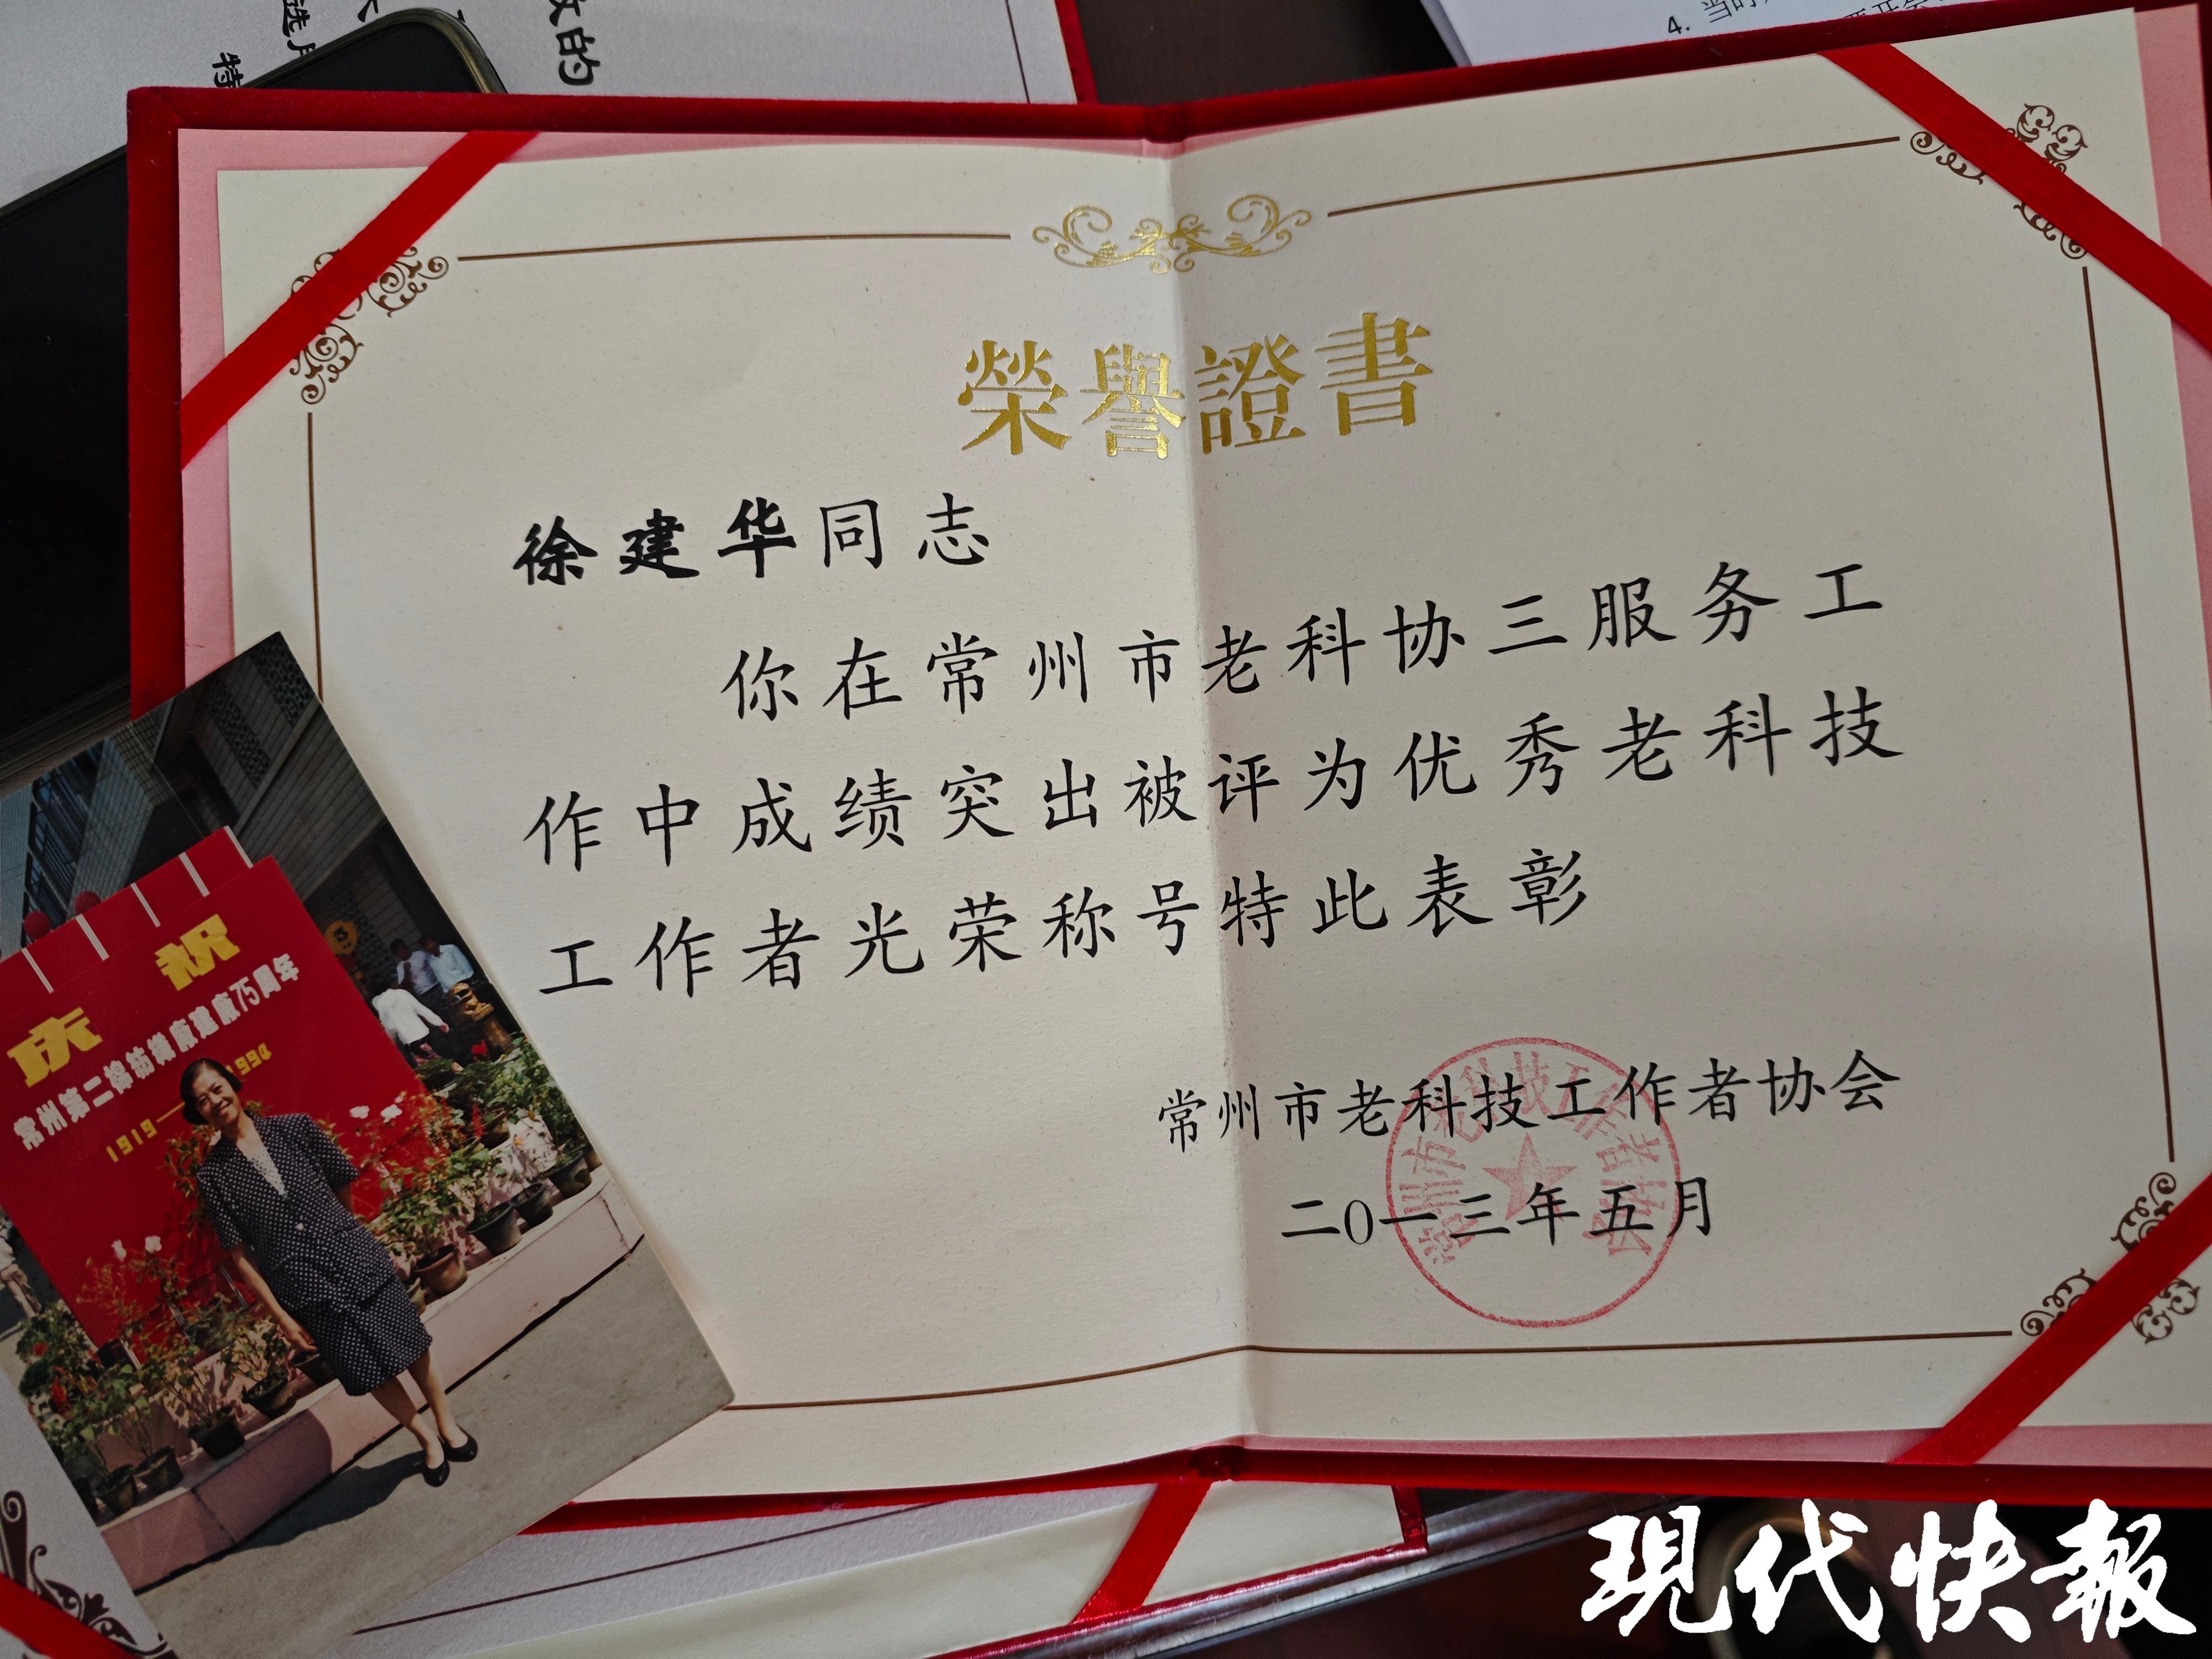 的
选
特
4. 当时
榮譽證書
徐建华同志
你在常州市老科协三服务工
作中成绩突出被评为优秀老科技
工作者光荣称号特此表彰
常州市老科技工作者协会
二0一三年五月
常州市老科技工作者协会
庆祝
常州第二棉纺织厂建厂75周年
1919—1994
現代快報